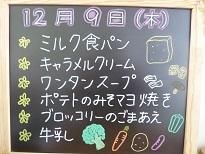 12月9日(木)
ミルク食パン
キャラメルクリーム
ワンタンスープ
ポテトのみそマヨ焼き
ブロッコリーのごまあえ
牛乳